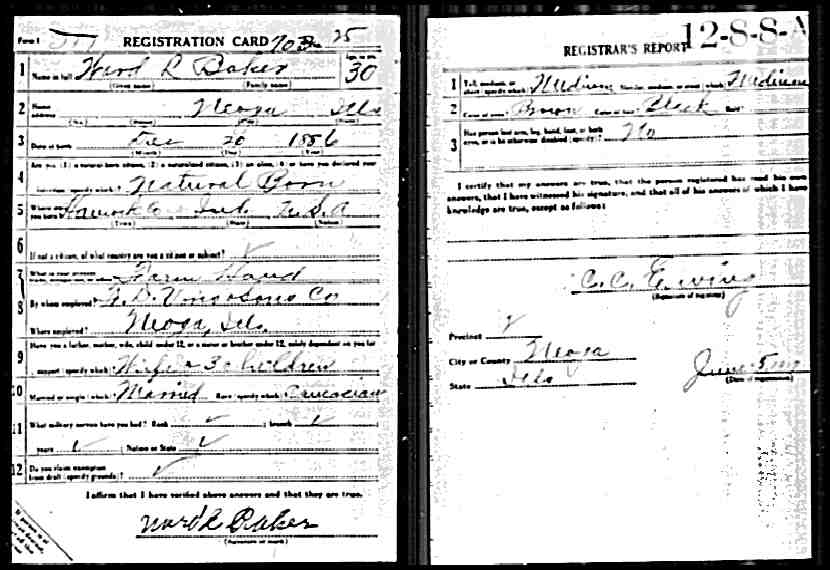 Form 1 REGISTRATION CARD 25
1 Name in full Ward R Baker Age, in yrs. 30
(Given name) (Family name)
2 Home address Neoga Ills
(No.) (Street) (City) (State)
3 Date of birth Dec 26 1886
(Month) (Day) (Year)
Are you (1) a natural-born citizen, (2) a naturalized citizen, (3) an alien, (4) or have you declared your
4 intention (specify which)? Natural Born
5 Where were you born? Ind. U.S.A
(Town) (State) (Nation)
6 If not a citizen, of what country are you a citizen or subject?
7 What is your present Farm Hand
8 By whom employed? Sons Co
Where employed? Neoga, Ills
9 Have you a father, mother, wife, child under 12, or a sister or brother under 12, solely dependent on you for
support (specify which)? Wife & 3 children
10 Married or single (which)? Married Race (specify which)? Caucasian
11 What military service have you had? Rank ; branch
years ; Nation or State
12 Do you claim exemption
from draft (specify grounds)?
I affirm that I have verified above answers and that they are true.
Ward R Baker
(Signature or mark)
REGISTRAR'S REPORT 12-8-8-A
1 Tall, medium, or short (specify which)? Medium Slender, medium, or stout (which)? Medium
2 Color of eyes? Brown Color of hair? Black Bald?
3 Has person lost arm, leg, hand, foot, or both
eyes, or is he otherwise disabled (specify)? No
I certify that my answers are true, that the person registered has read his own
answers, that I have witnessed his signature, and that all of his answers of which I have
knowledge are true, except as follows:
C. C. Ewing
(Signature of registrar)
Precinct 2
City or County Neoga
State Ills
June 5
(Date of registration)